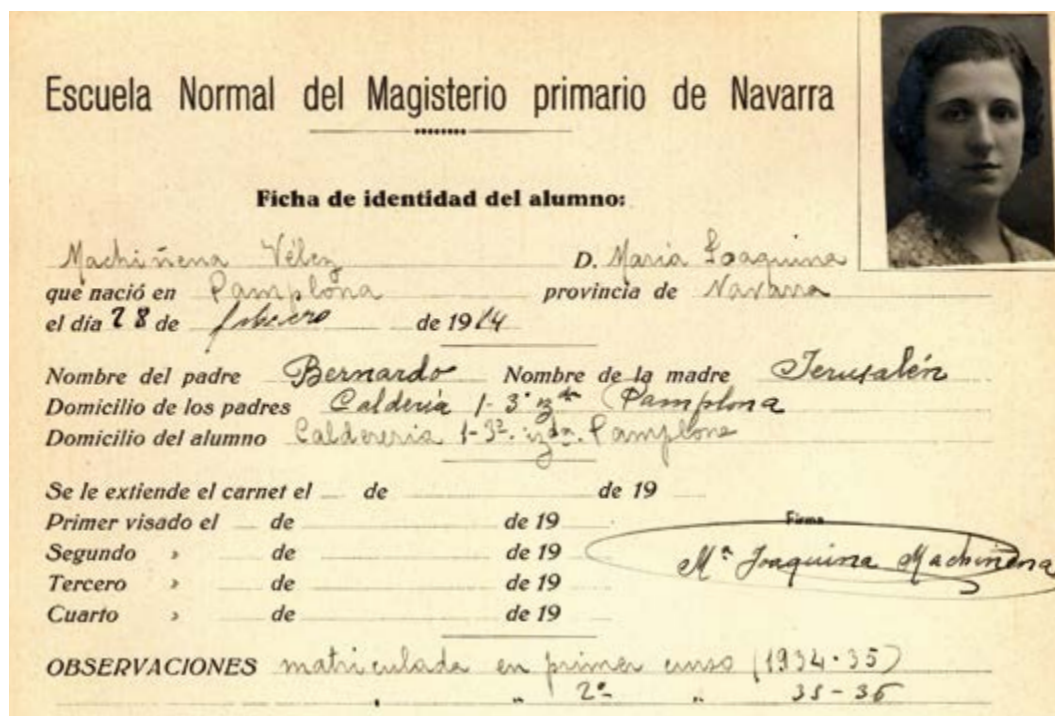 Escuela Normal del Magisterio primario de Navarra
Ficha de identidad del alumno:
Machiñena Vélez D. María Joaquina
que nació en Pamplona provincia de Navarra
el día 28 de febrero de 1914
Nombre del padre Bernardo Nombre de la madre Jerusalén
Domicilio de los padres Caldería 1-3º izda (Pamplona
Domicilio del alumno Calderería 1-3º. izda. Pamplona
Se le extiende el carnet el de de 19
Primer visado el de de 19
Firma
Segundo » de de 19
Mª Joaquina Machiñena
Tercero » de de 19
Cuarto » de de 19
OBSERVACIONES matriculada en primer curso (1934-35)
" " 2º " 35-36